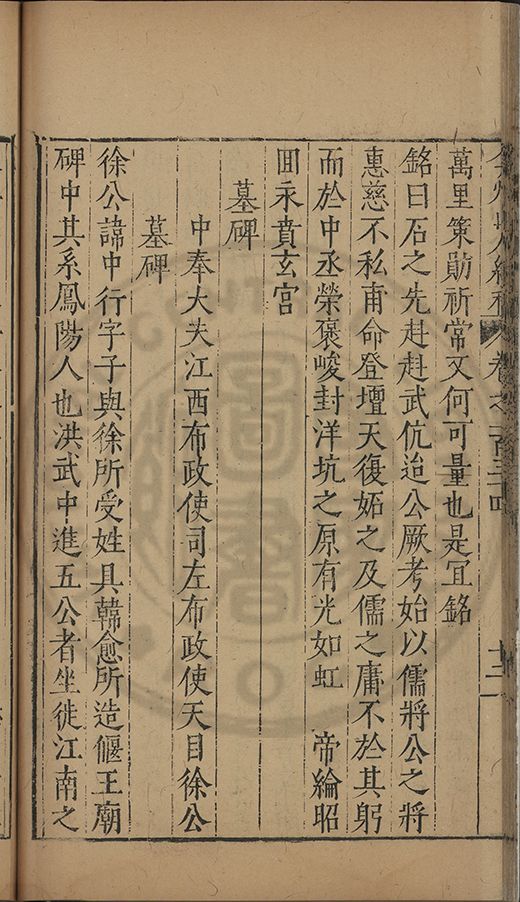 弇州山人續稿 卷之一百三十四 十二
萬里策勛祈常又何可量也是宜銘
銘曰石之先赳赳武伉迨公厥考始以儒將公之將
惠慈不私甫命登壇天復妬之及儒之庸不於其躬
而於中丞榮褒峻封洋坑之原有光如虹 帝綸昭
囬永賁玄宫
墓碑
中奉大夫江西布政使司左布政使天目徐公
墓碑
徐公諱中行字子與徐所受姓具韓愈所造偃王廟
碑中其系鳳陽人也洪武中進五公者坐徙江南之